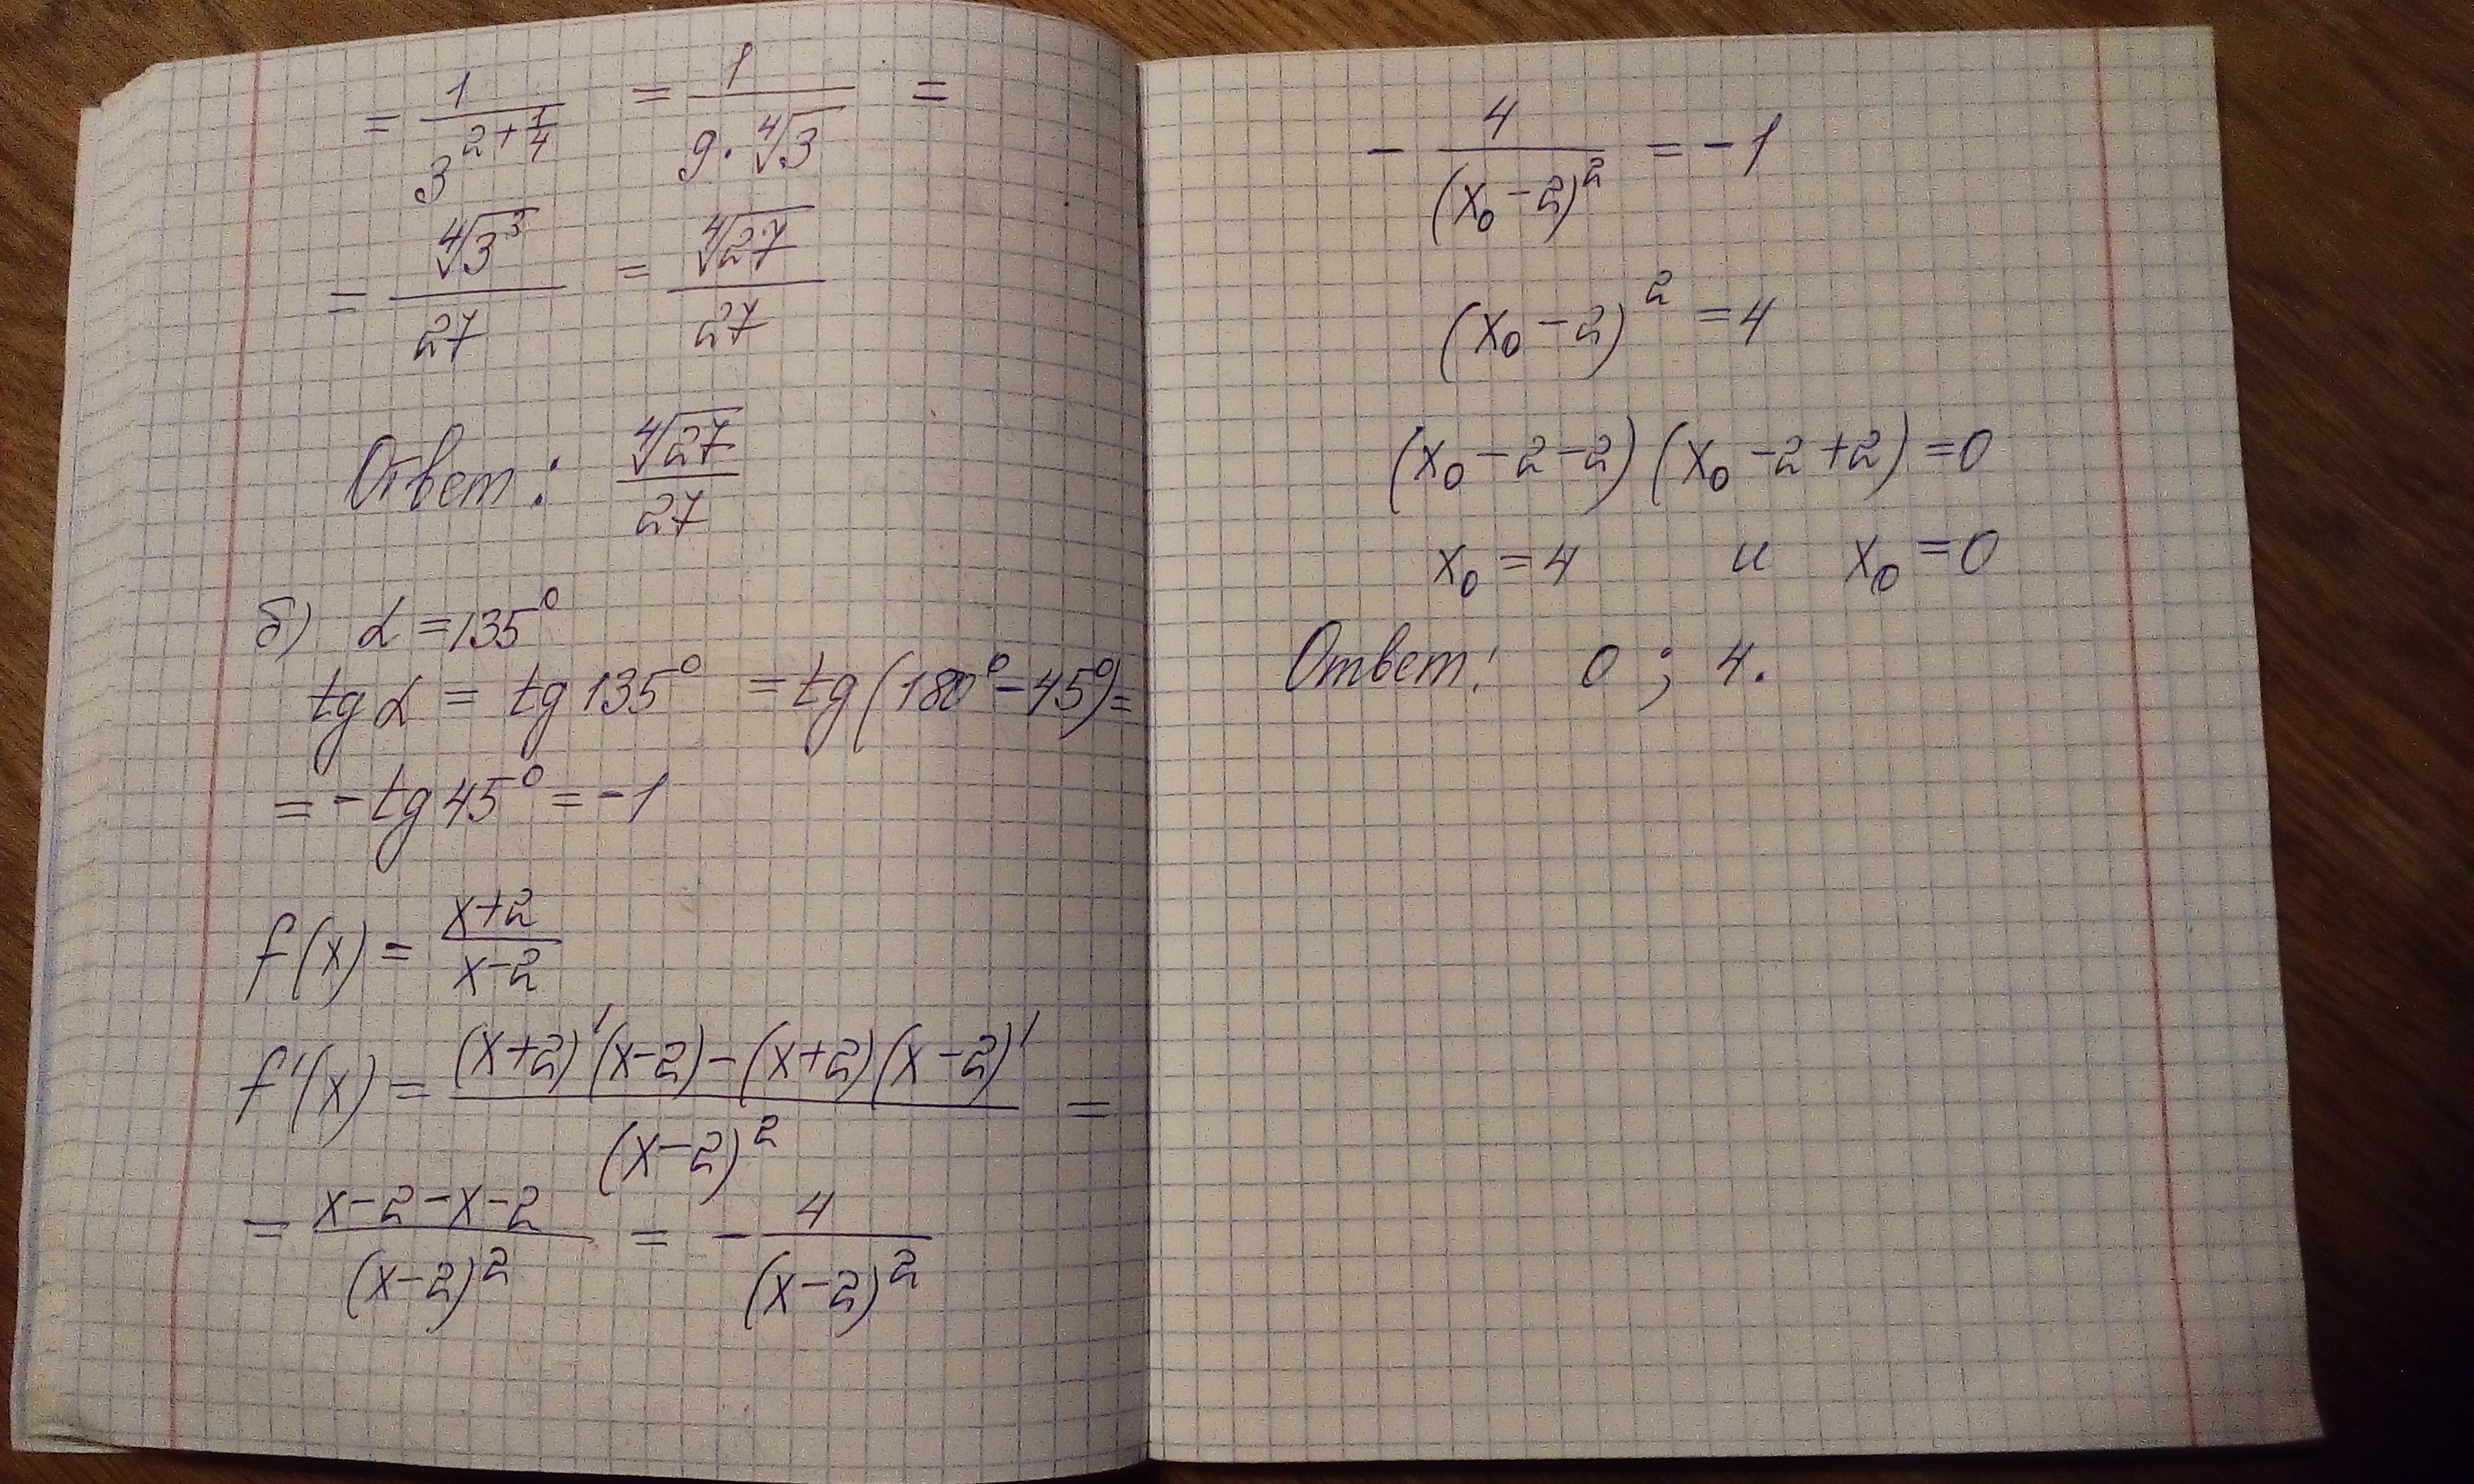 = 1/3^(2+1/4) = 1/(9·⁴√3) =
= ⁴√3³/27 = ⁴√27/27
Ответ: ⁴√27/27
б) α = 135°
tg α = tg 135° = tg (180° − 45°) =
= − tg 45° = −1
f(x) = (x+2)/(x−2)
f'(x) = ((x+2)'(x−2) − (x+2)(x−2)')/(x−2)² =
= (x−2−x−2)/(x−2)² = − 4/(x−2)²
− 4/(x₀−2)² = −1
(x₀ − 2)² = 4
(x₀ − 2 − 2)(x₀ − 2 + 2) = 0
x₀ = 4 и x₀ = 0
Ответ: 0 ; 4.